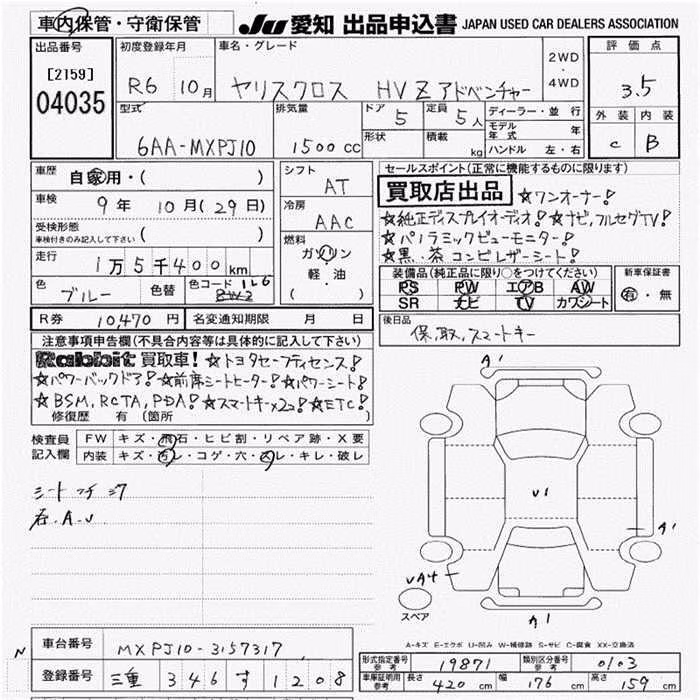 車内保管・守衛保管
JU 愛知 出品申込書 JAPAN USED CAR DEALERS ASSOCIATION
出品番号
[2159]
04035
初度登録年月
R6 10月
車名・グレード
ヤリスクロス HV Z アドベンチャー
2WD
・
4WD
評価点
3.5
外装 内装
C B
型式
6AA-MXPJ10
排気量
1500cc
ドア
5
定員
5人
形状
積載
kg
ディーラー・並行
モデル年式 年
ハンドル 左・右
車歴
自家用・( )
車検
9年 10月(29日)
受検形態
車検付きのみ記入して下さい
( )
走行
1万5千400km
色
ブルー
色替
色コード 1L6
シフト
AT
冷房
AAC
燃料
ガソリン
軽・油
( )
セールスポイント(正常に機能するものに限ります)
買取店出品 ☆ワンオーナー!
☆純正ディスプレイオーディオ!☆ナビ,フルセグTV!
☆パノラミックビューモニター!
☆黒・茶 コンビレザーシート!
装備品(純正品に限り○をつけてください)
PS PW エアB AW
SR ナビ TV カワシート
新車保証書
有・無
R券 10,470円
名変通知期限 月 日
後日品
保,取,スマートキー
注意事項申告欄(不具合内容等は具体的に記入して下さい)
Rabbit 買取車!☆トヨタセーフティセンス!
☆パワーバックドア!☆前席シートヒーター!☆パワーシート!
☆BSM,RCTA,PDA!☆スマートキー×2コ!☆ETC!
修復歴 有(箇所
検査員記入欄
FW キズ・飛石・ヒビ割・リペア跡・X要
内装 キズ・汚レ・コゲ・穴・スレ・キレ・破レ
A1
U1
A1
UA4
スペア
A1
A-キズ E-エクボ U-凹み W-補修跡 S-サビ C-腐食 XX-交換済
車台番号
MXPJ10-3157317
登録番号
三重 346 す 1208
形式指定番号
参考
19871
類別区分番号
参考
0103
車庫証明用
参考
長さ 420cm 幅 176cm 高さ 159cm